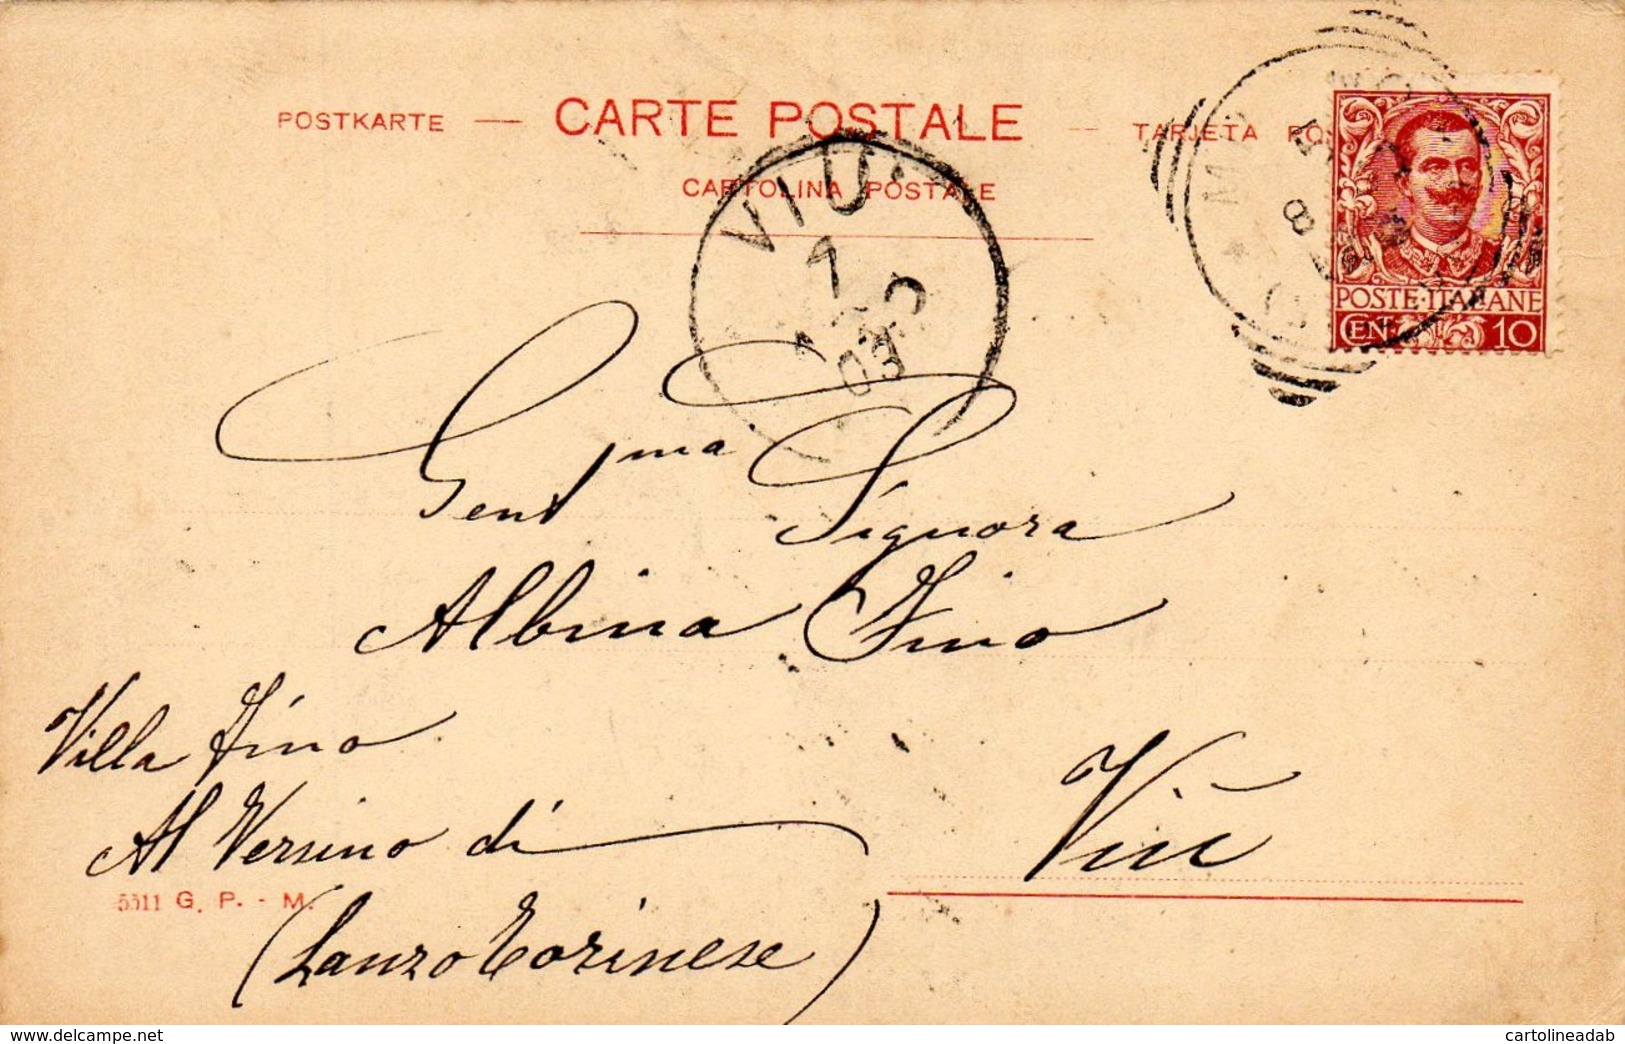 POSTKARTE — CARTE POSTALE — TARJETA POS
CARTOLINA POSTALE
VIÙ
7
03
8
POSTE ITALIANE
CENT 10
Gent ma Signora
Albina Fino
Villa Fino
Al Versino di
Viù
(Lanzo Torinese)
5511 G. P. - M.
www.delcampe.net
cartolineadab